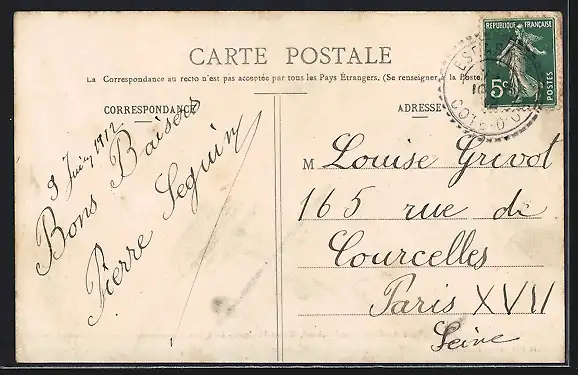 CARTE POSTALE
La Correspondance au recto n'est pas acceptée par tous les Pays Étrangers. (Se renseigner la Poste)
CORRESPONDANCE
ADRESSE
9 Juin 1912
Bons Baisers
Pierre Seguin
M Louise Grivot
165 rue de
Courcelles
Paris XVII
Seine
REPUBLIQUE FRANÇAISE
5c
POSTES
COTE-D'OR